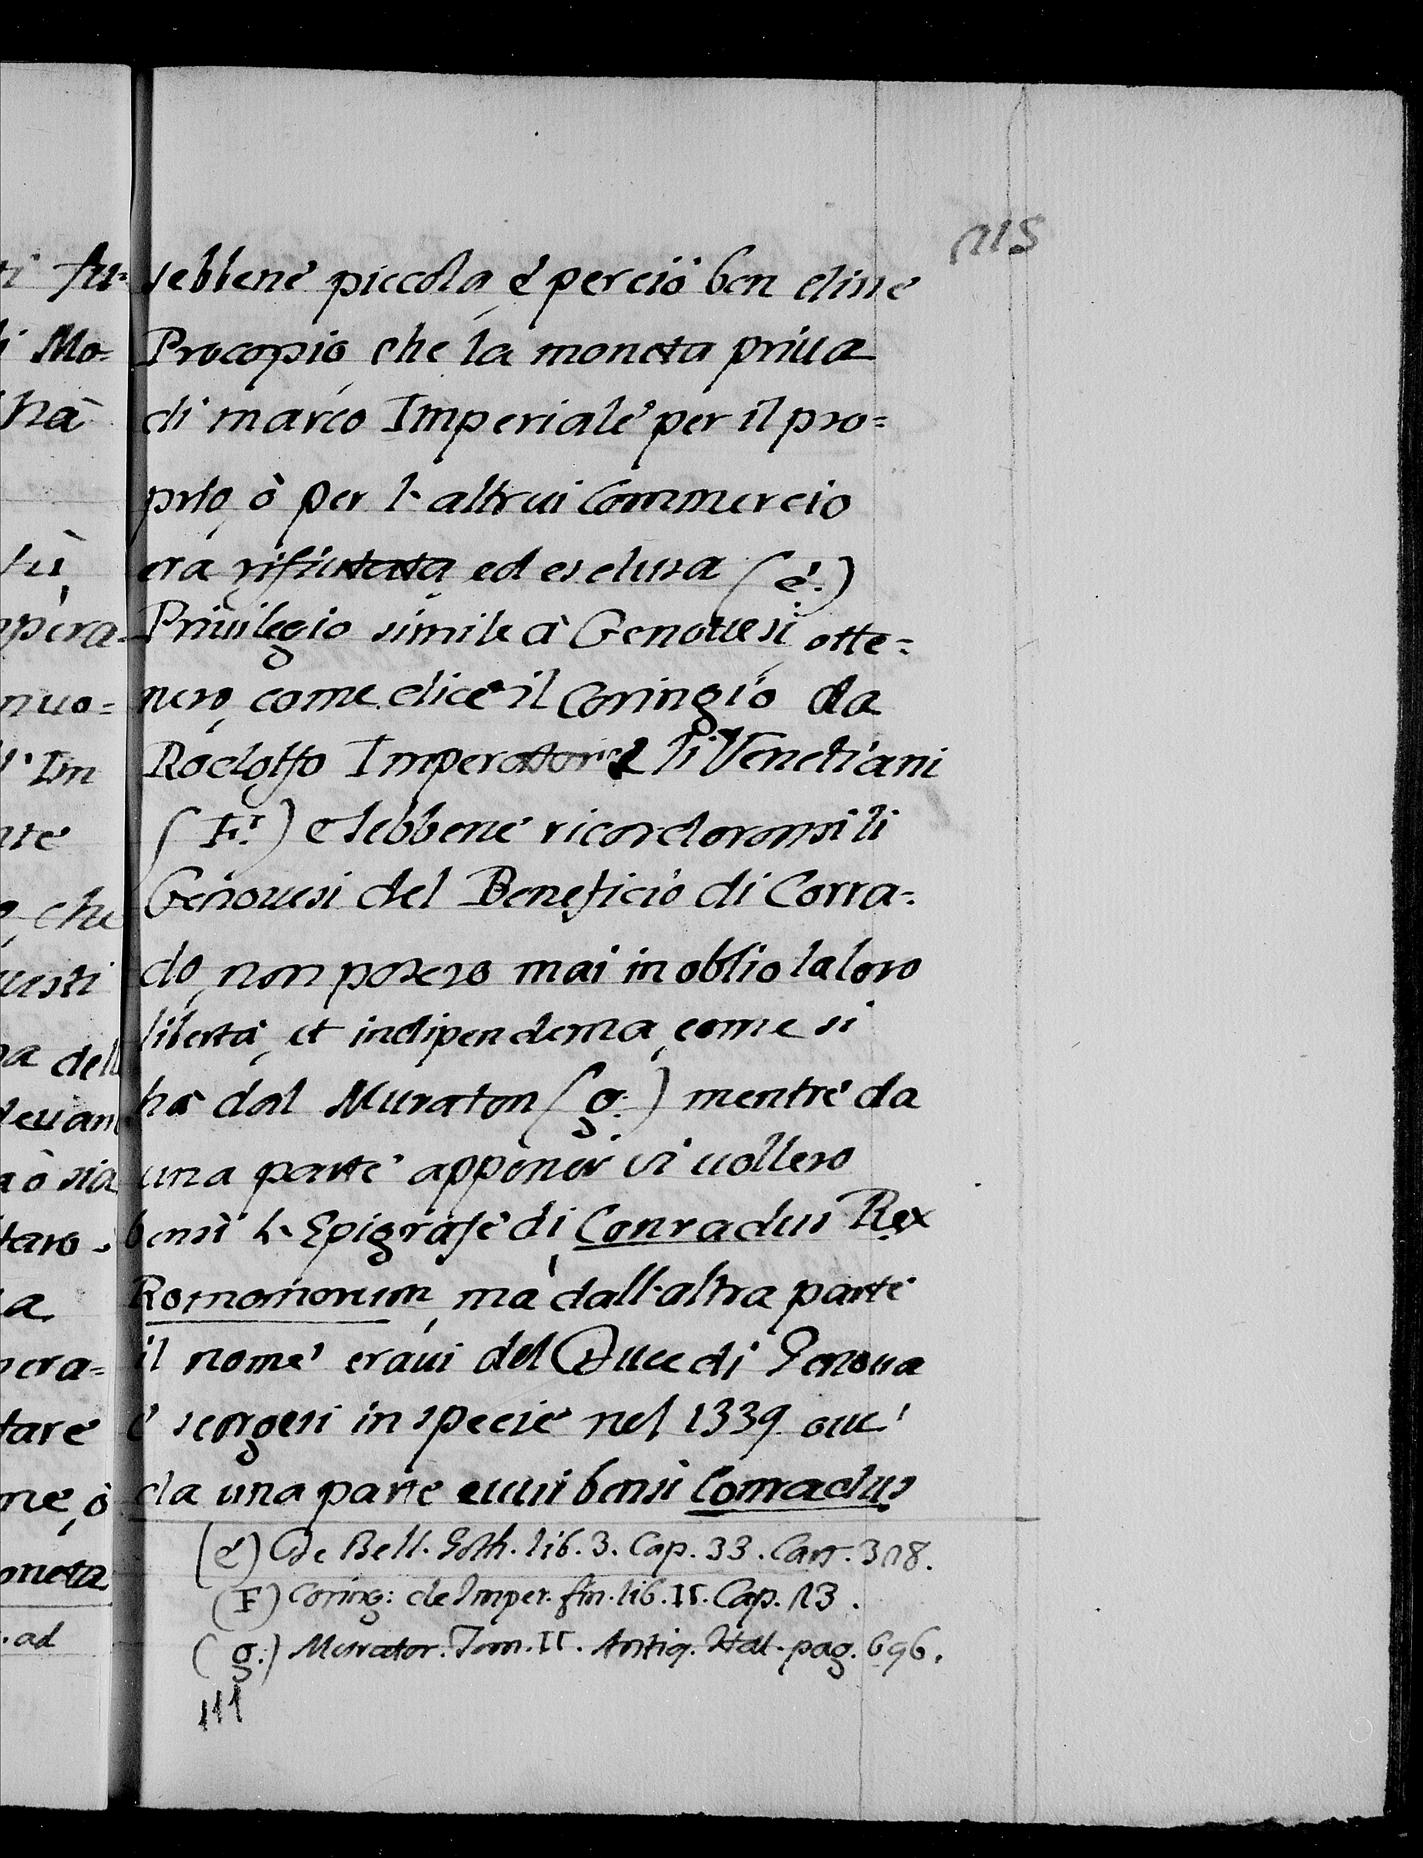 sebbene piccola, e perciò ben disse
Procopio che la moneta priva
di marco Imperiale per il pro=
prio, ò per l'altrui Commercio
era rifiutata ed esclusa (e.)
Privilegio simile à Genovesi, otte=
nero, come dice il Coringio da
Rodolfo Imperatore li Venetiani
(F.) e sebbene ricordoronsi li
Genovesi del Beneficio di Corra=
do, non posero mai in oblio la loro
libertà, et indipendenza, come si
hà dal Muratori (g.) mentre da
una parte apponer vi vollero
bensì l'Epigrafe di Conradus Rex
Romanorum, mà dall'altra parte
il nome eravi del Duce di Genova
e scorgesi in specie nel 1339 ove
da una parte evvi bensi Conradus
(e) De Bell. Goth. lib. 3. Cap. 33. Cart. 318.
(F) Coring: de Imper. fin. lib. II. Cap. 13.
(g.) Murator. Tom. II. Antiq. Ital. pag. 696.
111